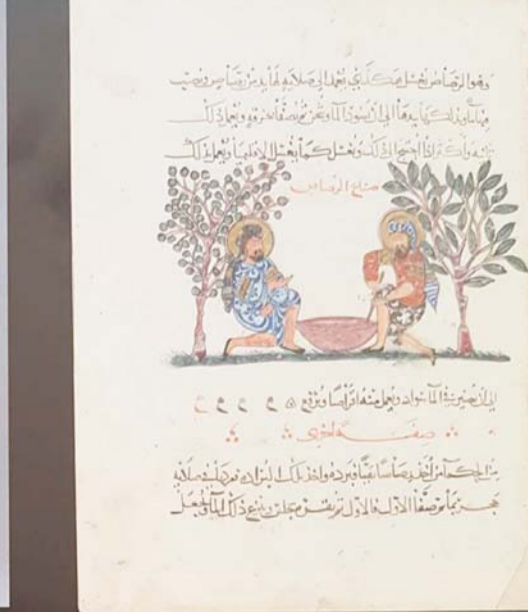 وهو الرصاص يغسل هكذى يعمد الى صلايه لها يد من رصاص ويصب
فيها ما ويدلك بها يدها الى ان يسود الما ويثخن ثم يصفا بخرقه ويعمل ذلك
ثانيه واكثر ان احتيج الى ذلك ويغسل كما يغسل الاقليميا ويعمل ذلك
صناع الرصاص
الى ان يصير في الما سواد ويعمل منه اقراصا ويرفع
صفة اخرى
من الحكما من اخذ رصاصا نقيا فبرده واخذ تلك البراده في صلايه
حجر بما ثم صفا الاول فالاول ذلك الما